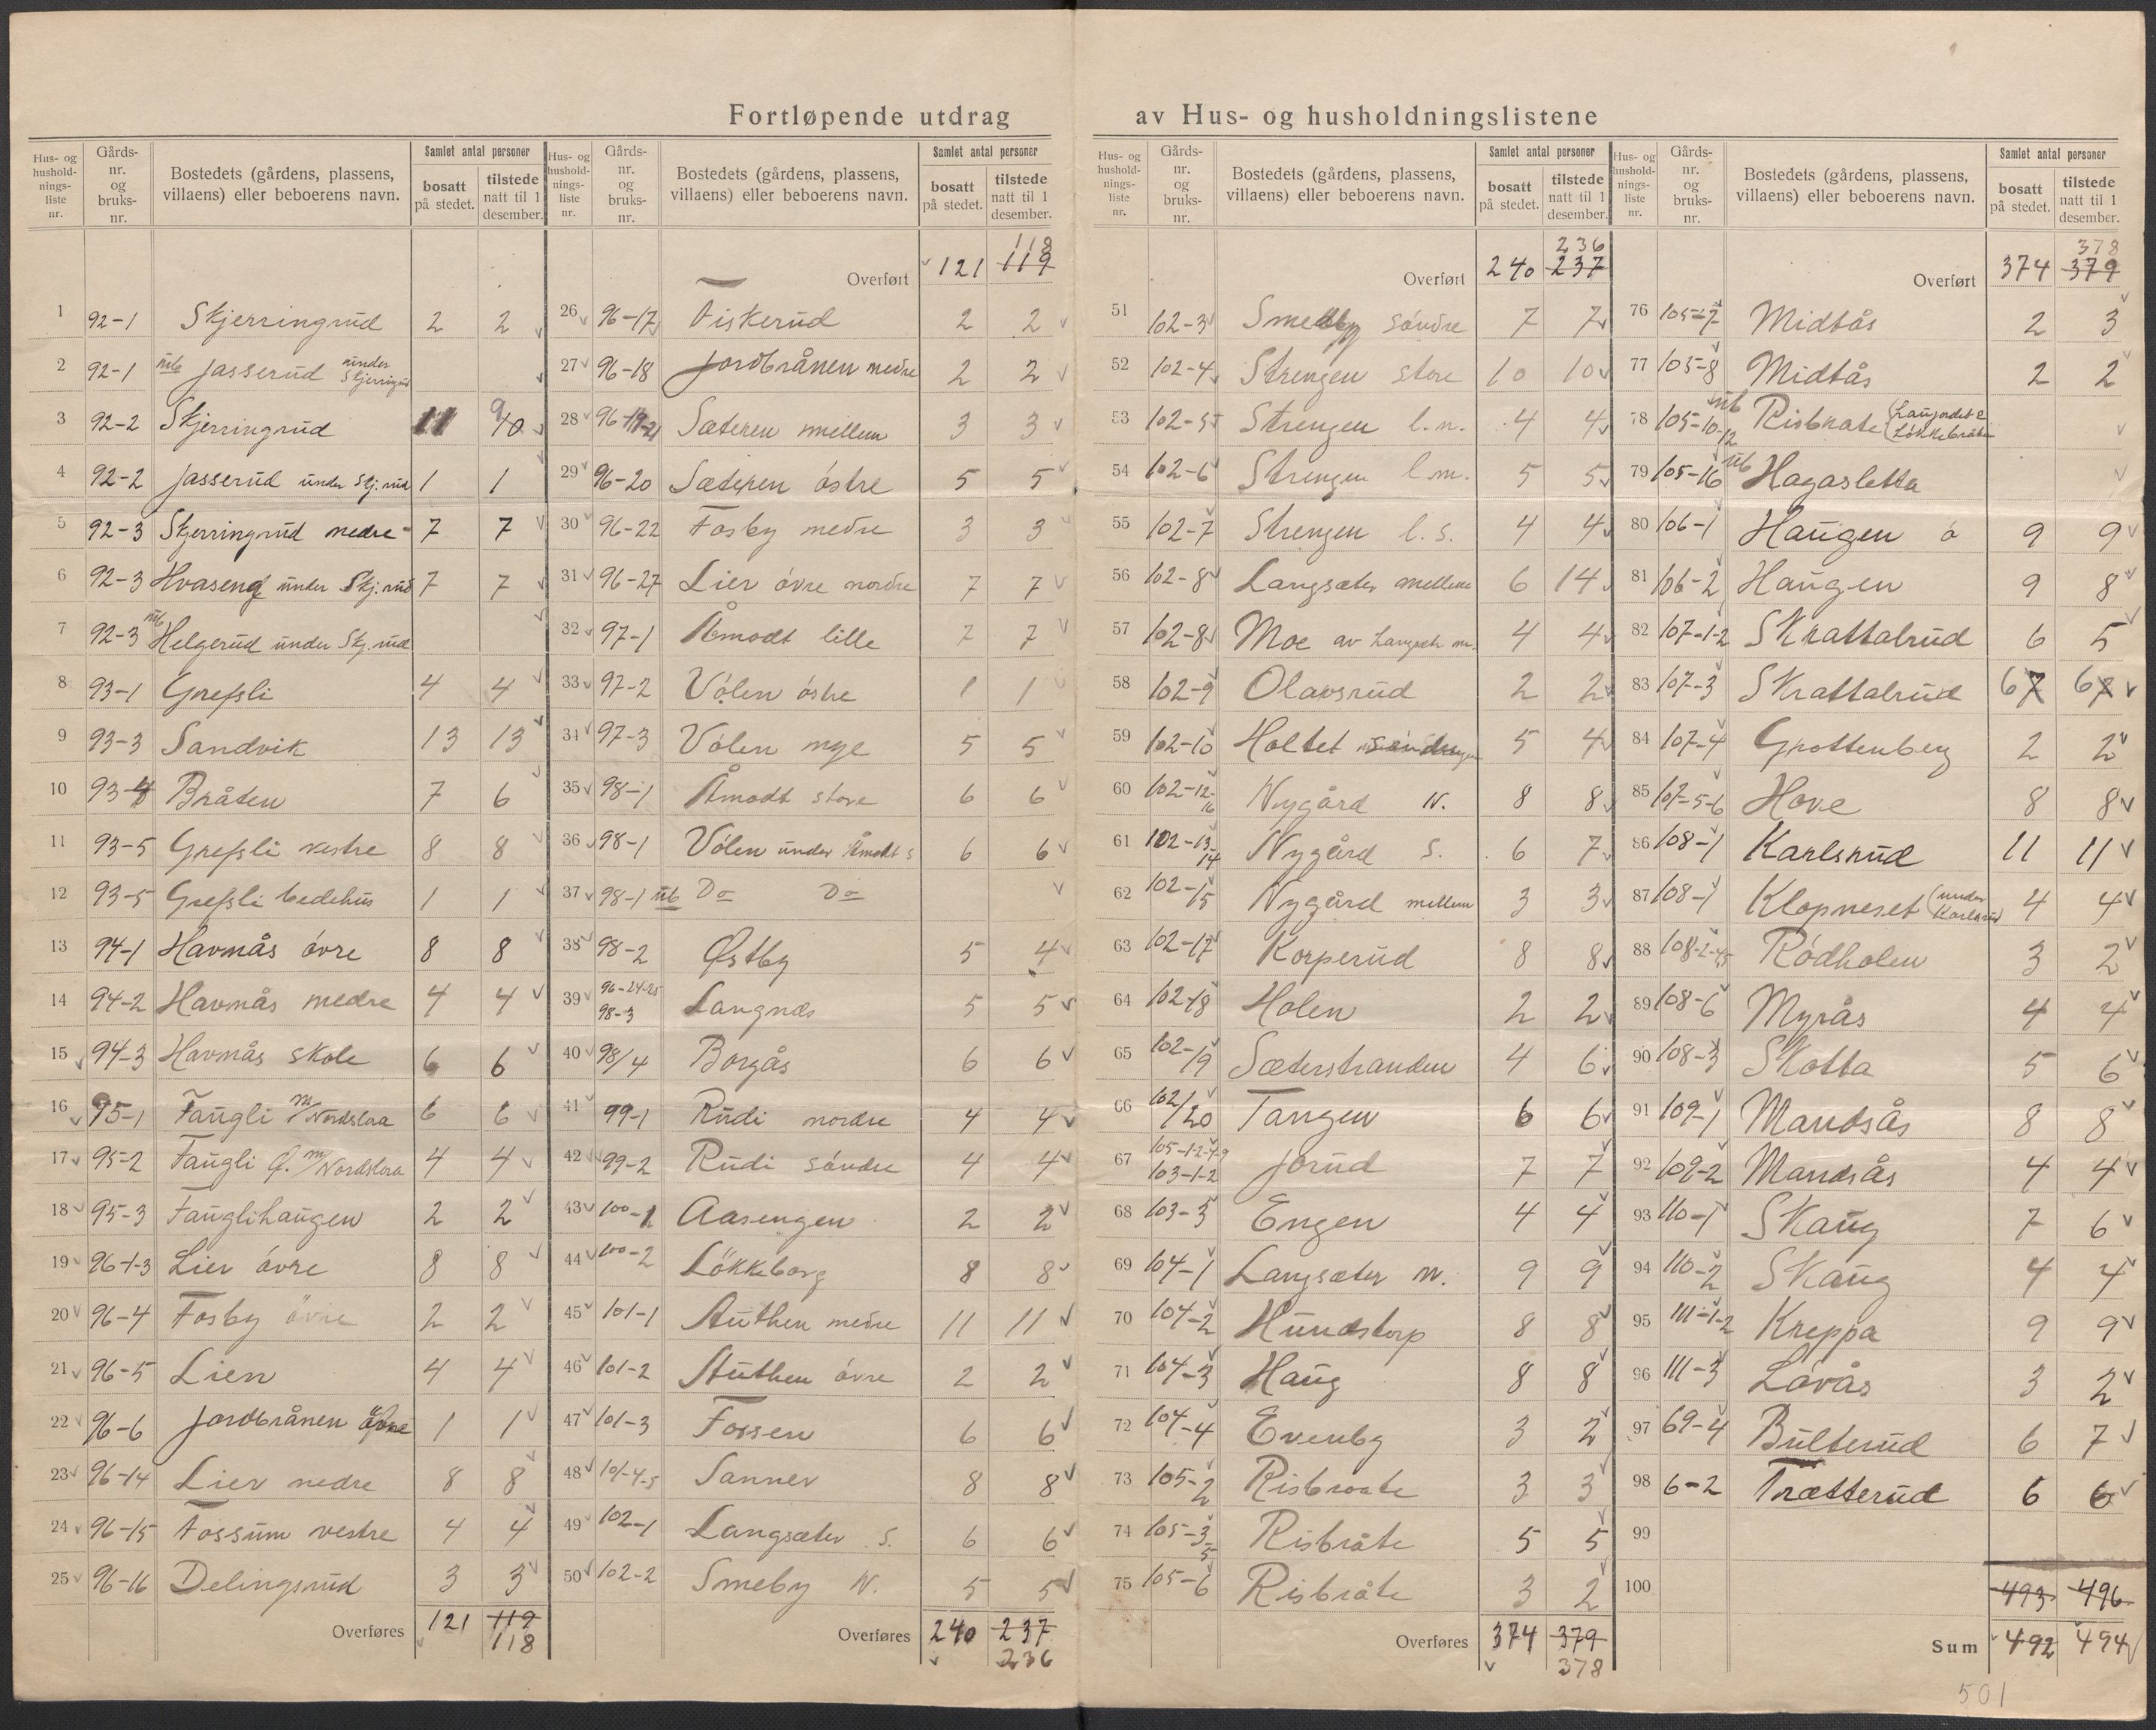 Fortløpende utdrag av Hus- og husholdningslistene
Hus- og hushold-nings-liste nr. Gårds-nr. og bruks-nr. Bostedets (gårdens, plassens, villaens) eller beboerens navn. Samlet antal personer bosatt på stedet. tilstede natt til 1 desember.
1 92-1 Skjerringrud 2 2
2 92-1 ub Jasserud under Skjerringrud
3 92-2 Skjerringrud 11 9 10
4 92-2 Jasserud under Skj.rud 1 1
5 92-3 Skjerringrud nedre 7 7
6 92-3 Hvaseng under Skj.rud 7 7
7 92-3 ub Helgerud under Skj.rud
8 93-1 Grefsli 4 4
9 93-3 Sandvik 13 13
10 93-4 Bråten 7 6
11 93-5 Grefsli vestre 8 8
12 93-5 Grefsli bedehus 1 1
13 94-1 Havnås övre 8 8
14 94-2 Havnås nedre 4 4
15 94-3 Havnås skole 6 6
16 95-1 Faugli m/Nordslaa 6 6
17 95-2 Faugli Ø. m/Nordslaa 4 4
18 95-3 Fauglihaugen 2 2
19 96-1-3 Lier övre 8 8
20 96-4 Fosby övre 2 2
21 96-5 Lien 4 4
22 96-6 Jordbrånen övre 1 1
23 96-14 Lier nedre 8 8
24 96-15 Fossum vestre 4 4
25 96-16 Delingsrud 3 3
Overføres 121 119 118
Hus- og hushold-nings-liste nr. Gårds-nr. og bruks-nr. Bostedets (gårdens, plassens, villaens) eller beboerens navn. Samlet antal personer bosatt på stedet. tilstede natt til 1 desember.
Overført 121 118 119
26 96-17 Fiskerud 2 2
27 96-18 Jordbrånen nedre 2 2
28 96-19-21 Sæteren mellem 3 3
29 96-20 Sæteren östre 5 5
30 96-22 Fosby nedre 3 3
31 96-27 Lier övre nordre 7 7
32 97-1 Åmodt lille 7 7
33 97-2 Völen östre 1 1
34 97-3 Völen nye 5 5
35 98-1 Åmodt store 6 6
36 98-1 Völen under Åmodt s 6 6
37 98-1 ub Do Do
38 98-2 Østby 5 4
39 96-24-25 98-3 Langnes 5 5
40 98/4 Borgås 6 6
41 99-1 Rudi nordre 4 4
42 99-2 Rudi söndre 4 4
43 100-1 Aasengen 2 2
44 100-2 Lökkeborg 8 8
45 101-1 Authen nedre 11 11
46 101-2 Authen övre 2 2
47 101-3 Fossen 6 6
48 101-4-5 Sanner 8 8
49 102-1 Langsæter S. 6 6
50 102-2 Smeby N. 5 5
Overføres 240 237 236
Hus- og hushold-nings-liste nr. Gårds-nr. og bruks-nr. Bostedets (gårdens, plassens, villaens) eller beboerens navn. Samlet antal personer bosatt på stedet. tilstede natt til 1 desember.
Overført 240 236 237
51 102-3 Smedby söndre 7 7
52 102-4 Strengen store 10 10
53 102-5 Strengen l.n. 4 4
54 102-6 Strengen l.m. 5 5
55 102-7 Strengen l.s. 4 4
56 102-8 Langsæter mellem 6 14
57 102-8 Moe av Langsæter m. 4 4
58 102-9 Olavsrud 2 2
59 102-10 Holtet 5 4
60 102-12-16 Nygård N. 8 8
61 102-13-14 Nygård S. 6 7
62 102-15 Nygård mellem 3 3
63 102-17 Korperud 8 8
64 102-18 Holen 2 2
65 102-19 Sæterstranden 4 6
66 102/20 Tangen 6 6
67 105-1-2-4-9 103-1-2 Jorud 7 7
68 103-3 Engen 4 4
69 104-1 Langsæter N. 9 9
70 104-2 Hundstorp 8 8
71 104-3 Haug 8 8
72 104-4 Evenby 3 2
73 105-2 Risbraate 3 3
74 105-3-5 Risbråte 5 5
75 105-6 Risbråte 3 2
Overføres 374 379 378
Hus- og hushold-nings-liste nr. Gårds-nr. og bruks-nr. Bostedets (gårdens, plassens, villaens) eller beboerens navn. Samlet antal personer bosatt på stedet. tilstede natt til 1 desember.
Overført 374 378 379
76 105-7 Midtås 2 3
77 105-8 Midtås 2 2
78 105-10-12 ub Risbråte (Laugordet & Lökkebråte
79 105-16 ub Hagasletta
80 106-1 Haugen ö 9 9
81 106-2 Haugen 9 8
82 107-1-2 Skrattalrud 6 5
83 107-3 Skrattalrud 6 7 6 7
84 107-4 Grottenberg 2 2
85 107-5-6 Hove 8 8
86 108-1 Karlsrud 11 11
87 108-1 Klopneset (under Karlsrud 4 4
88 108-2-4-5 Rödholen 3 2
89 108-6 Myrås 4 4
90 108-3 Skotta 5 6
91 109-1 Mandsås 8 8
92 109-2 Mandsås 4 4
93 110-1 Skaug 7 6
94 110-2 Skaug 4 4
95 111-1-2 Kreppa 9 9
96 111-3 Lövås 3 2
97 69-4 Bulterud 6 7
98 6-2 Trætterud 6 6
99
100
493 496
Sum 492 494
501